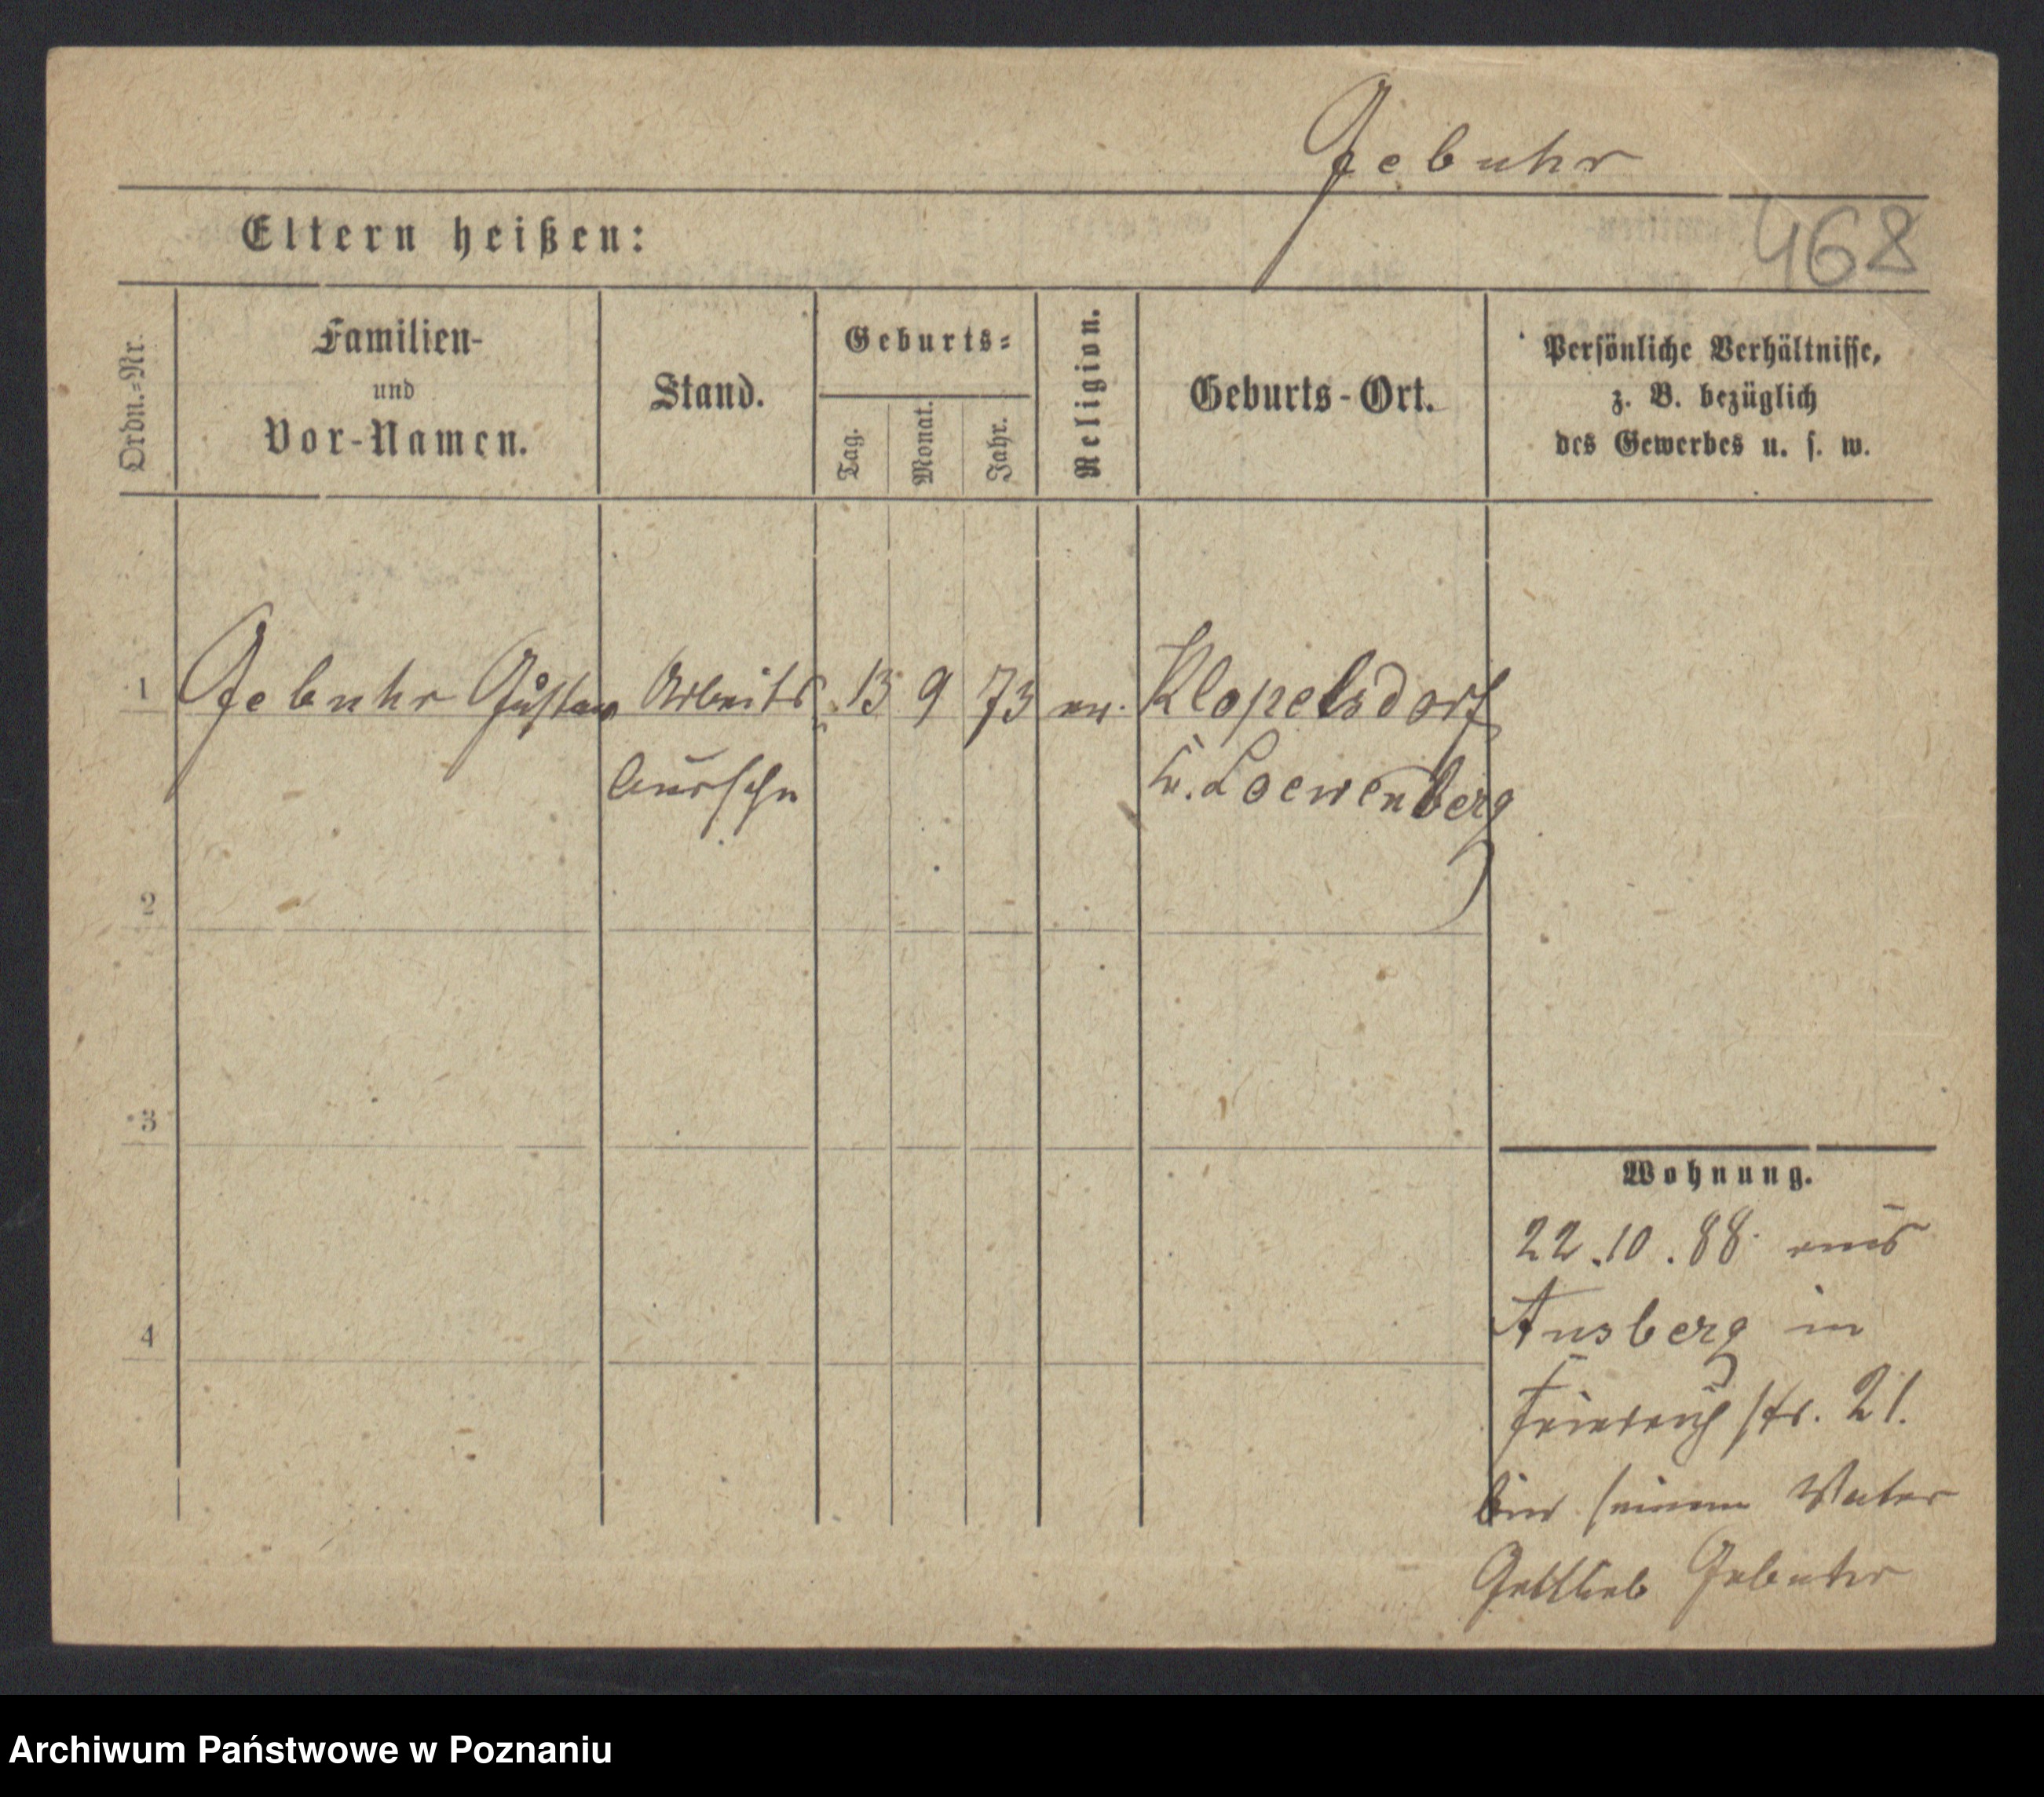 Gebuhr
Eltern heißen:
468
Ordn.-Nr.
Familien-
und
Vor-Namen.
Stand.
Geburts-
Tag.
Monat.
Jahr.
Religion.
Geburts-Ort.
Persönliche Verhältnisse,
z. B. bezüglich
des Gewerbes u. s. w.
1 Gebuhr Gustav Arbeits 13 9 73 ev. Klopelsdorf
bursche Kr. Loewenberg
2
3
4
Wohnung.
22.10.88. aus
Ansberg in
Friedrichstr. 21.
bei seinem Vater
Gottlieb Gebuhr
Archiwum Państwowe w Poznaniu